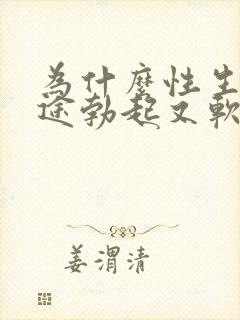 為什麼性生
途勃起又軟
姜渭清